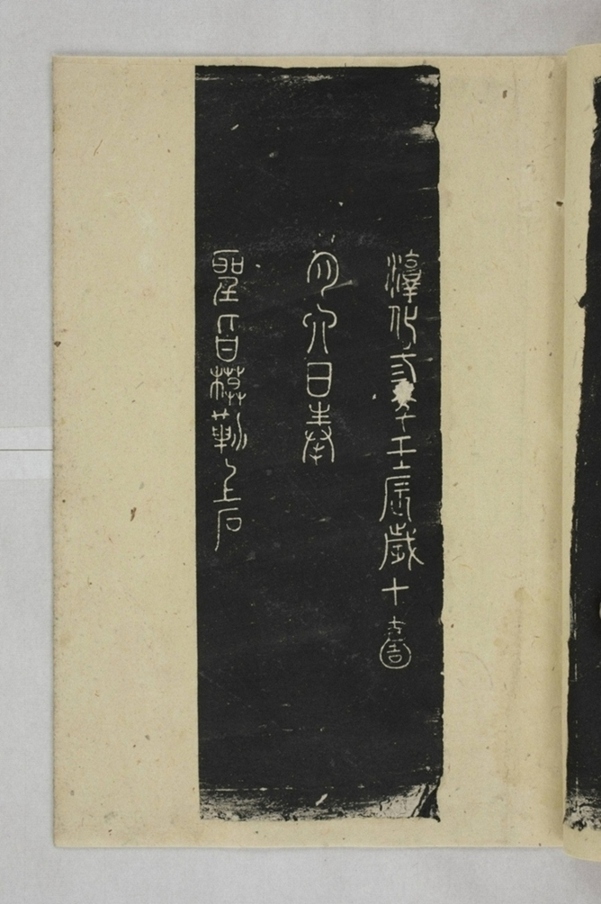 淳化三年壬辰歲十一
月六日奉
聖旨模勒上石